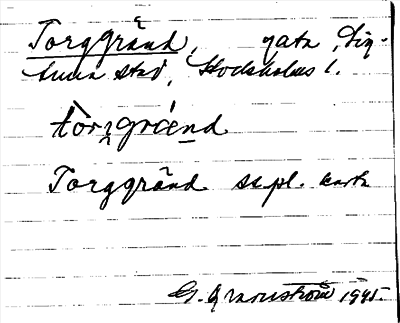 Torggränd, gata, Sig-
tuna stad, Stockholms l.
tòrgrend
Torggränd st.pl. karta
1945.